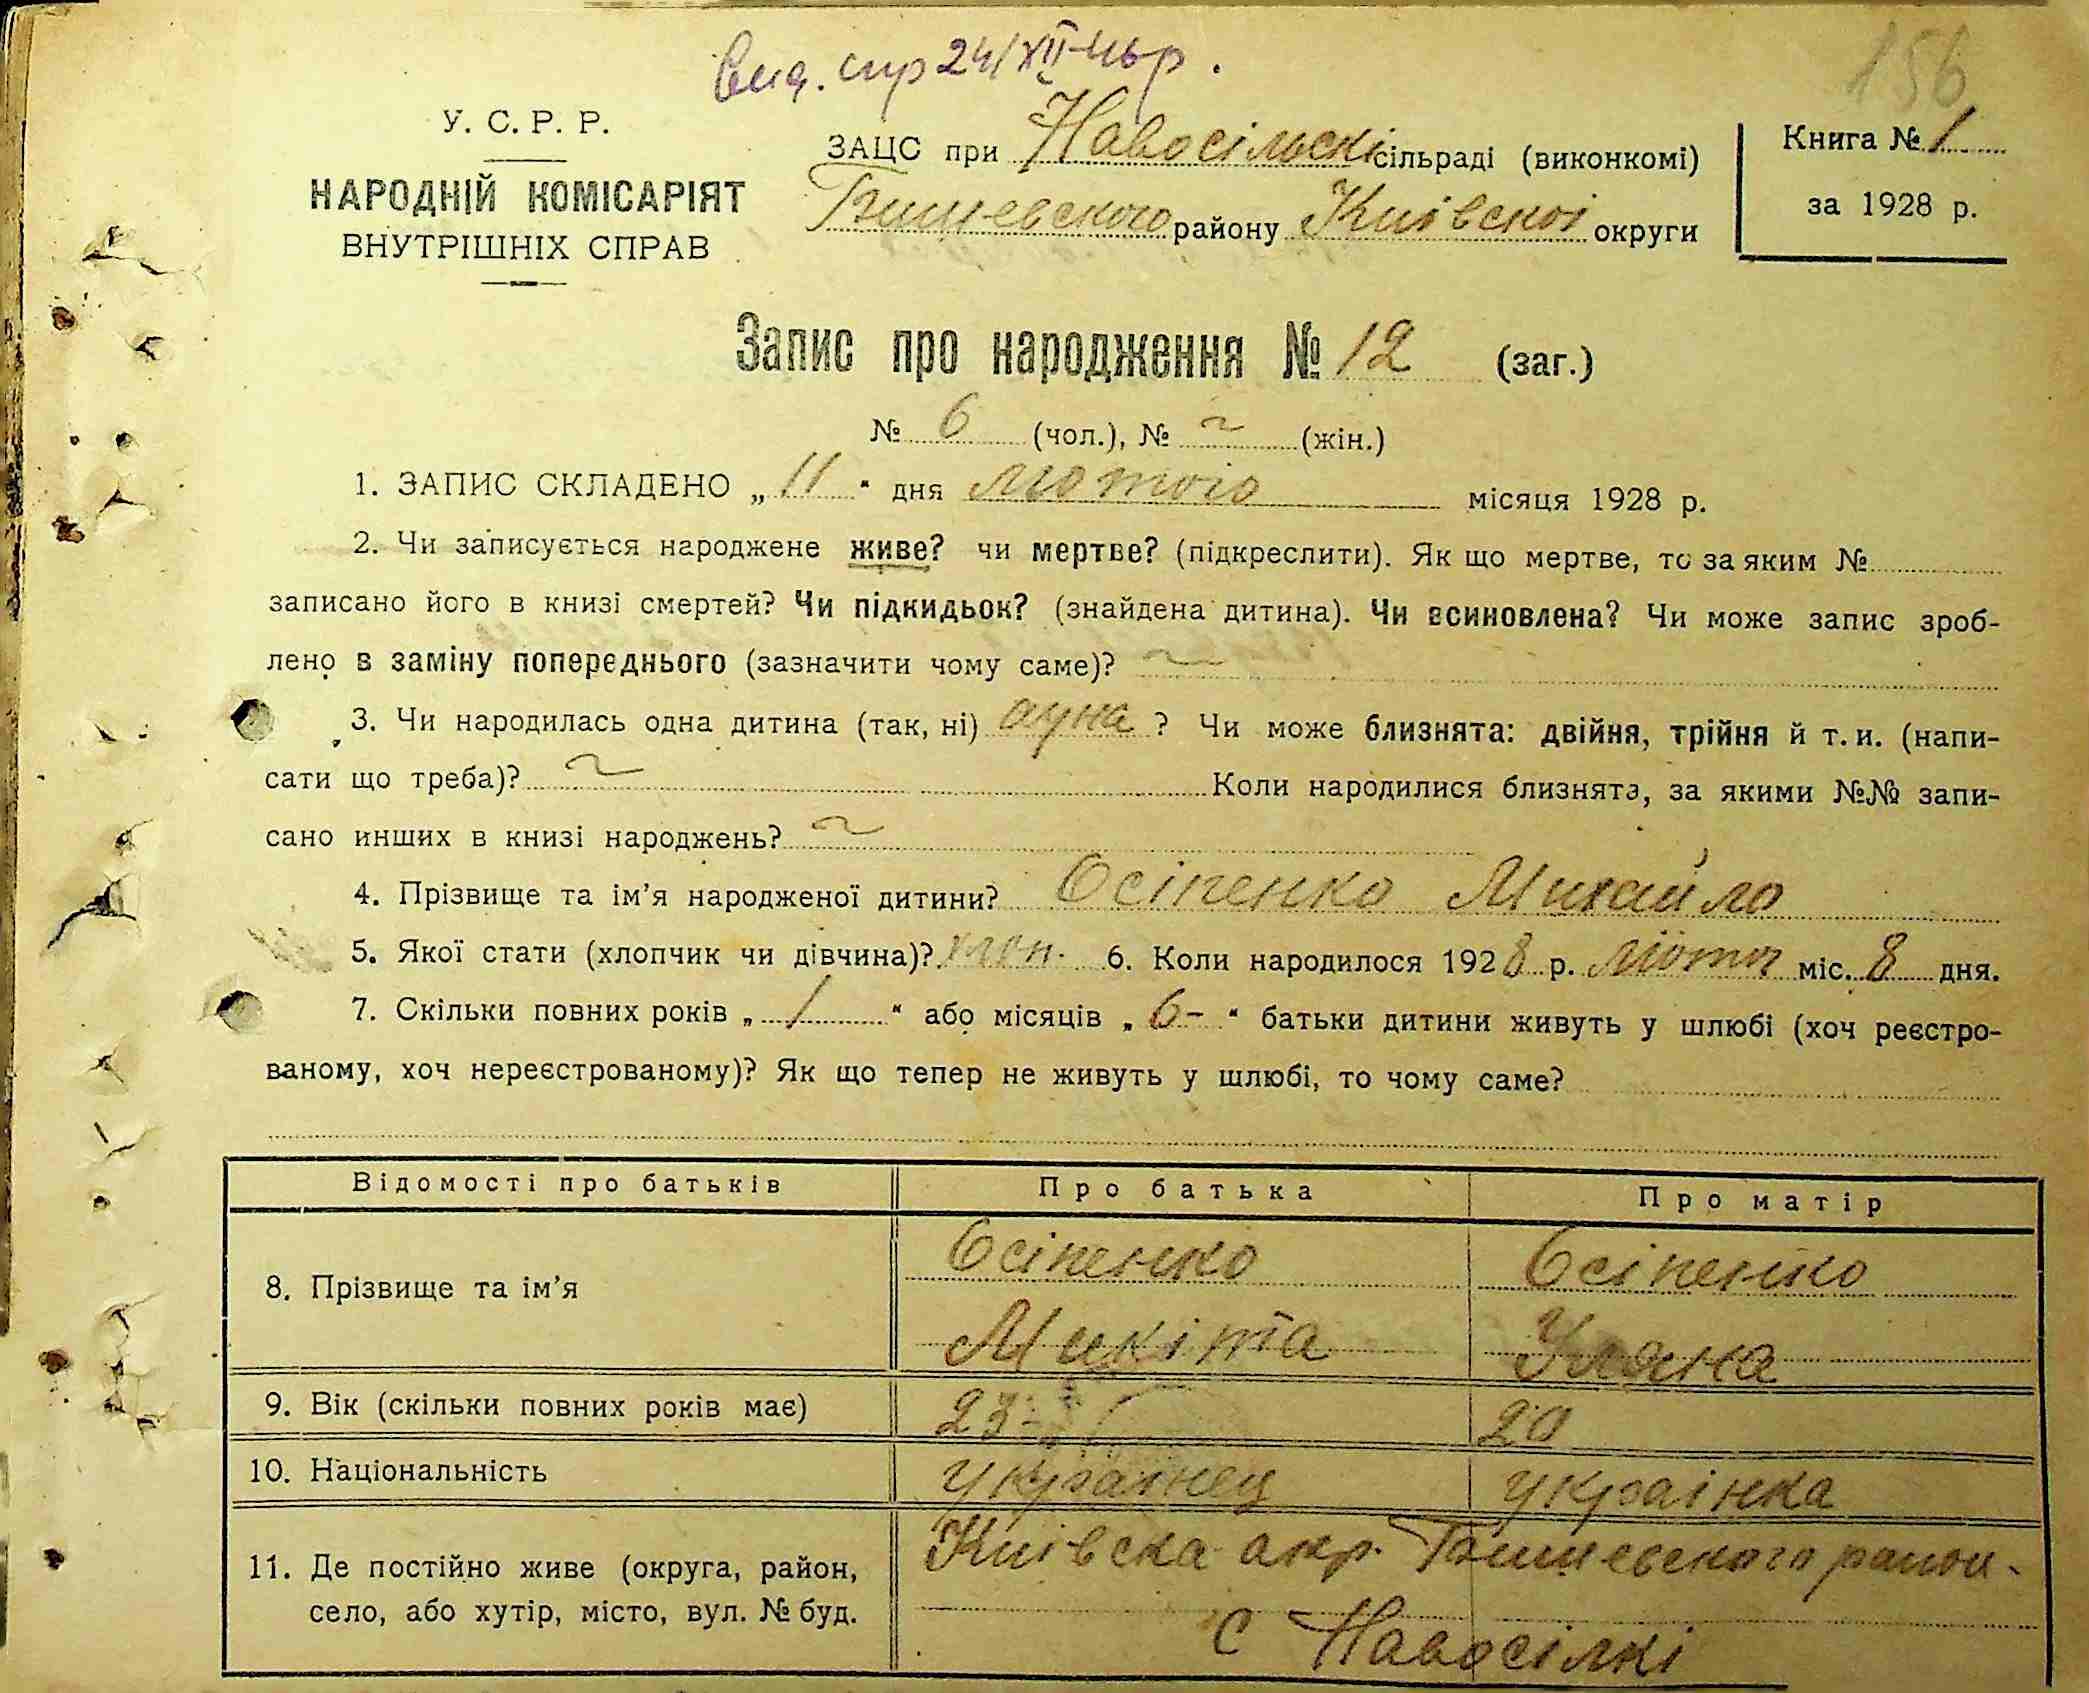 Вид. спр 24/XII 46р.
156
У. С. Р. Р.
НАРОДНІЙ КОМІСАРІЯТ
ВНУТРІШНІХ СПРАВ
ЗАЦС при Навосільскі сільраді (виконкомі)
Бишевского району Київскоі округи
Книга № 1
за 1928 р.
Запис про народження № 12 (заг.)
№ 6 (чол.), № ~ (жін.)
1. ЗАПИС СКЛАДЕНО „ 11 “ дня лютого місяця 1928 р.
2. Чи записується народжене живе? чи мертве? (підкреслити). Як що мертве, то за яким №
записано його в книзі смертей? Чи підкидьок? (знайдена дитина). Чи всиновлена? Чи може запис зроб-
лено в заміну попереднього (зазначити чому саме)? ~
3. Чи народилась одна дитина (так, ні) одна ? Чи може близнята: двійня, трійня й т. и. (напи-
сати що треба)? ~ Коли народилися близнята, за якими №№ запи-
сано инших в книзі народжень? ~
4. Прізвище та ім’я народженої дитини? Осіпенко Михайло
5. Якої стати (хлопчик чи дівчина)? хлоп. 6. Коли народилося 1928 р. лютог міс. 8 дня.
7. Скільки повних років „ 1 “ або місяців „ 6- “ батьки дитини живуть у шлюбі (хоч реєстро-
ваному, хоч нереєстрованому)? Як що тепер не живуть у шлюбі, то чому саме?
Відомості про батьків Про батька Про матір
8. Прізвище та ім’я Осіпенко Осіпенко
Микіта Уляна
9. Вік (скільки повних років має) 23- 20
10. Національність украінец украінка
11. Де постійно живе (округа, район, Киівска окр. Бишевского район-
село, або хутір, місто, вул. № буд. с Навосілкі